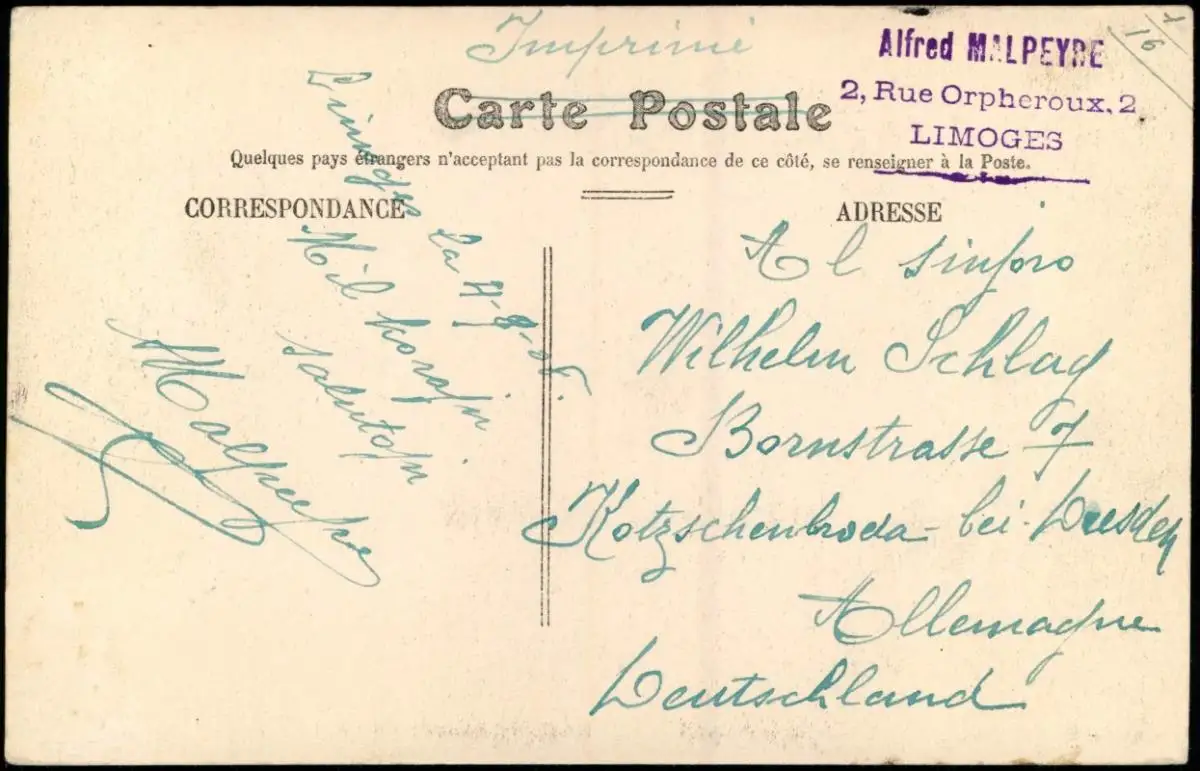 Imprimé
Alfred MALPEYRE
2, Rue Orpheroux, 2
LIMOGES
16
1
Carte Postale
Quelques pays étrangers n'acceptant pas la correspondance de ce côté, se renseigner à la Poste.
CORRESPONDANCE
ADRESSE
Limoges
La 7-8-08.
Mil korajn
salutojn
AMalpeyre
Al sinjoro
Wilhelm Schlag
Bornstrasse 7
Kotzschenbroda - bei Dresden
Allemagne
Deutschland